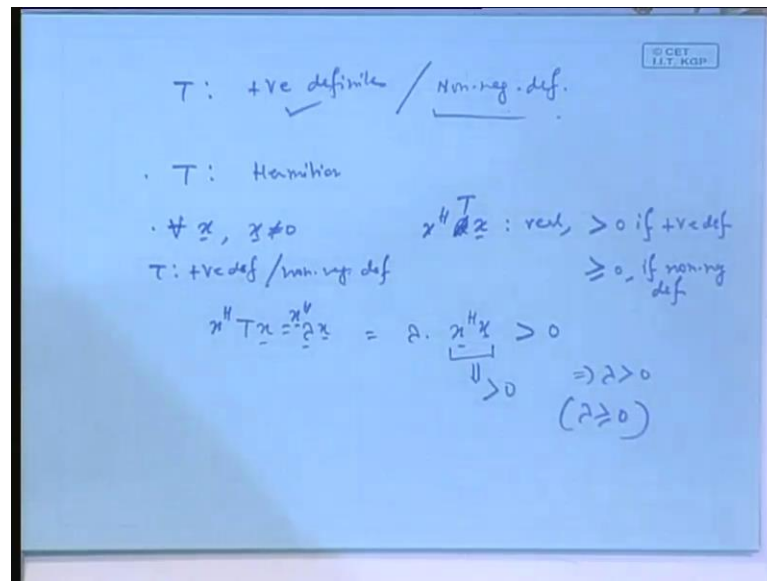 © CET
I.I.T. KGP
T : +ve definite / Non-neg. def.
T : Hermitian
∀ x, x ≠ 0 x^H T x : real, > 0 if +ve def
T : +ve def / non-neg def ≥ 0, if non-neg def
x^H T x = x^H λ x = λ . x^H x > 0
⇓ > 0 ⇒ λ > 0
(λ ≥ 0)